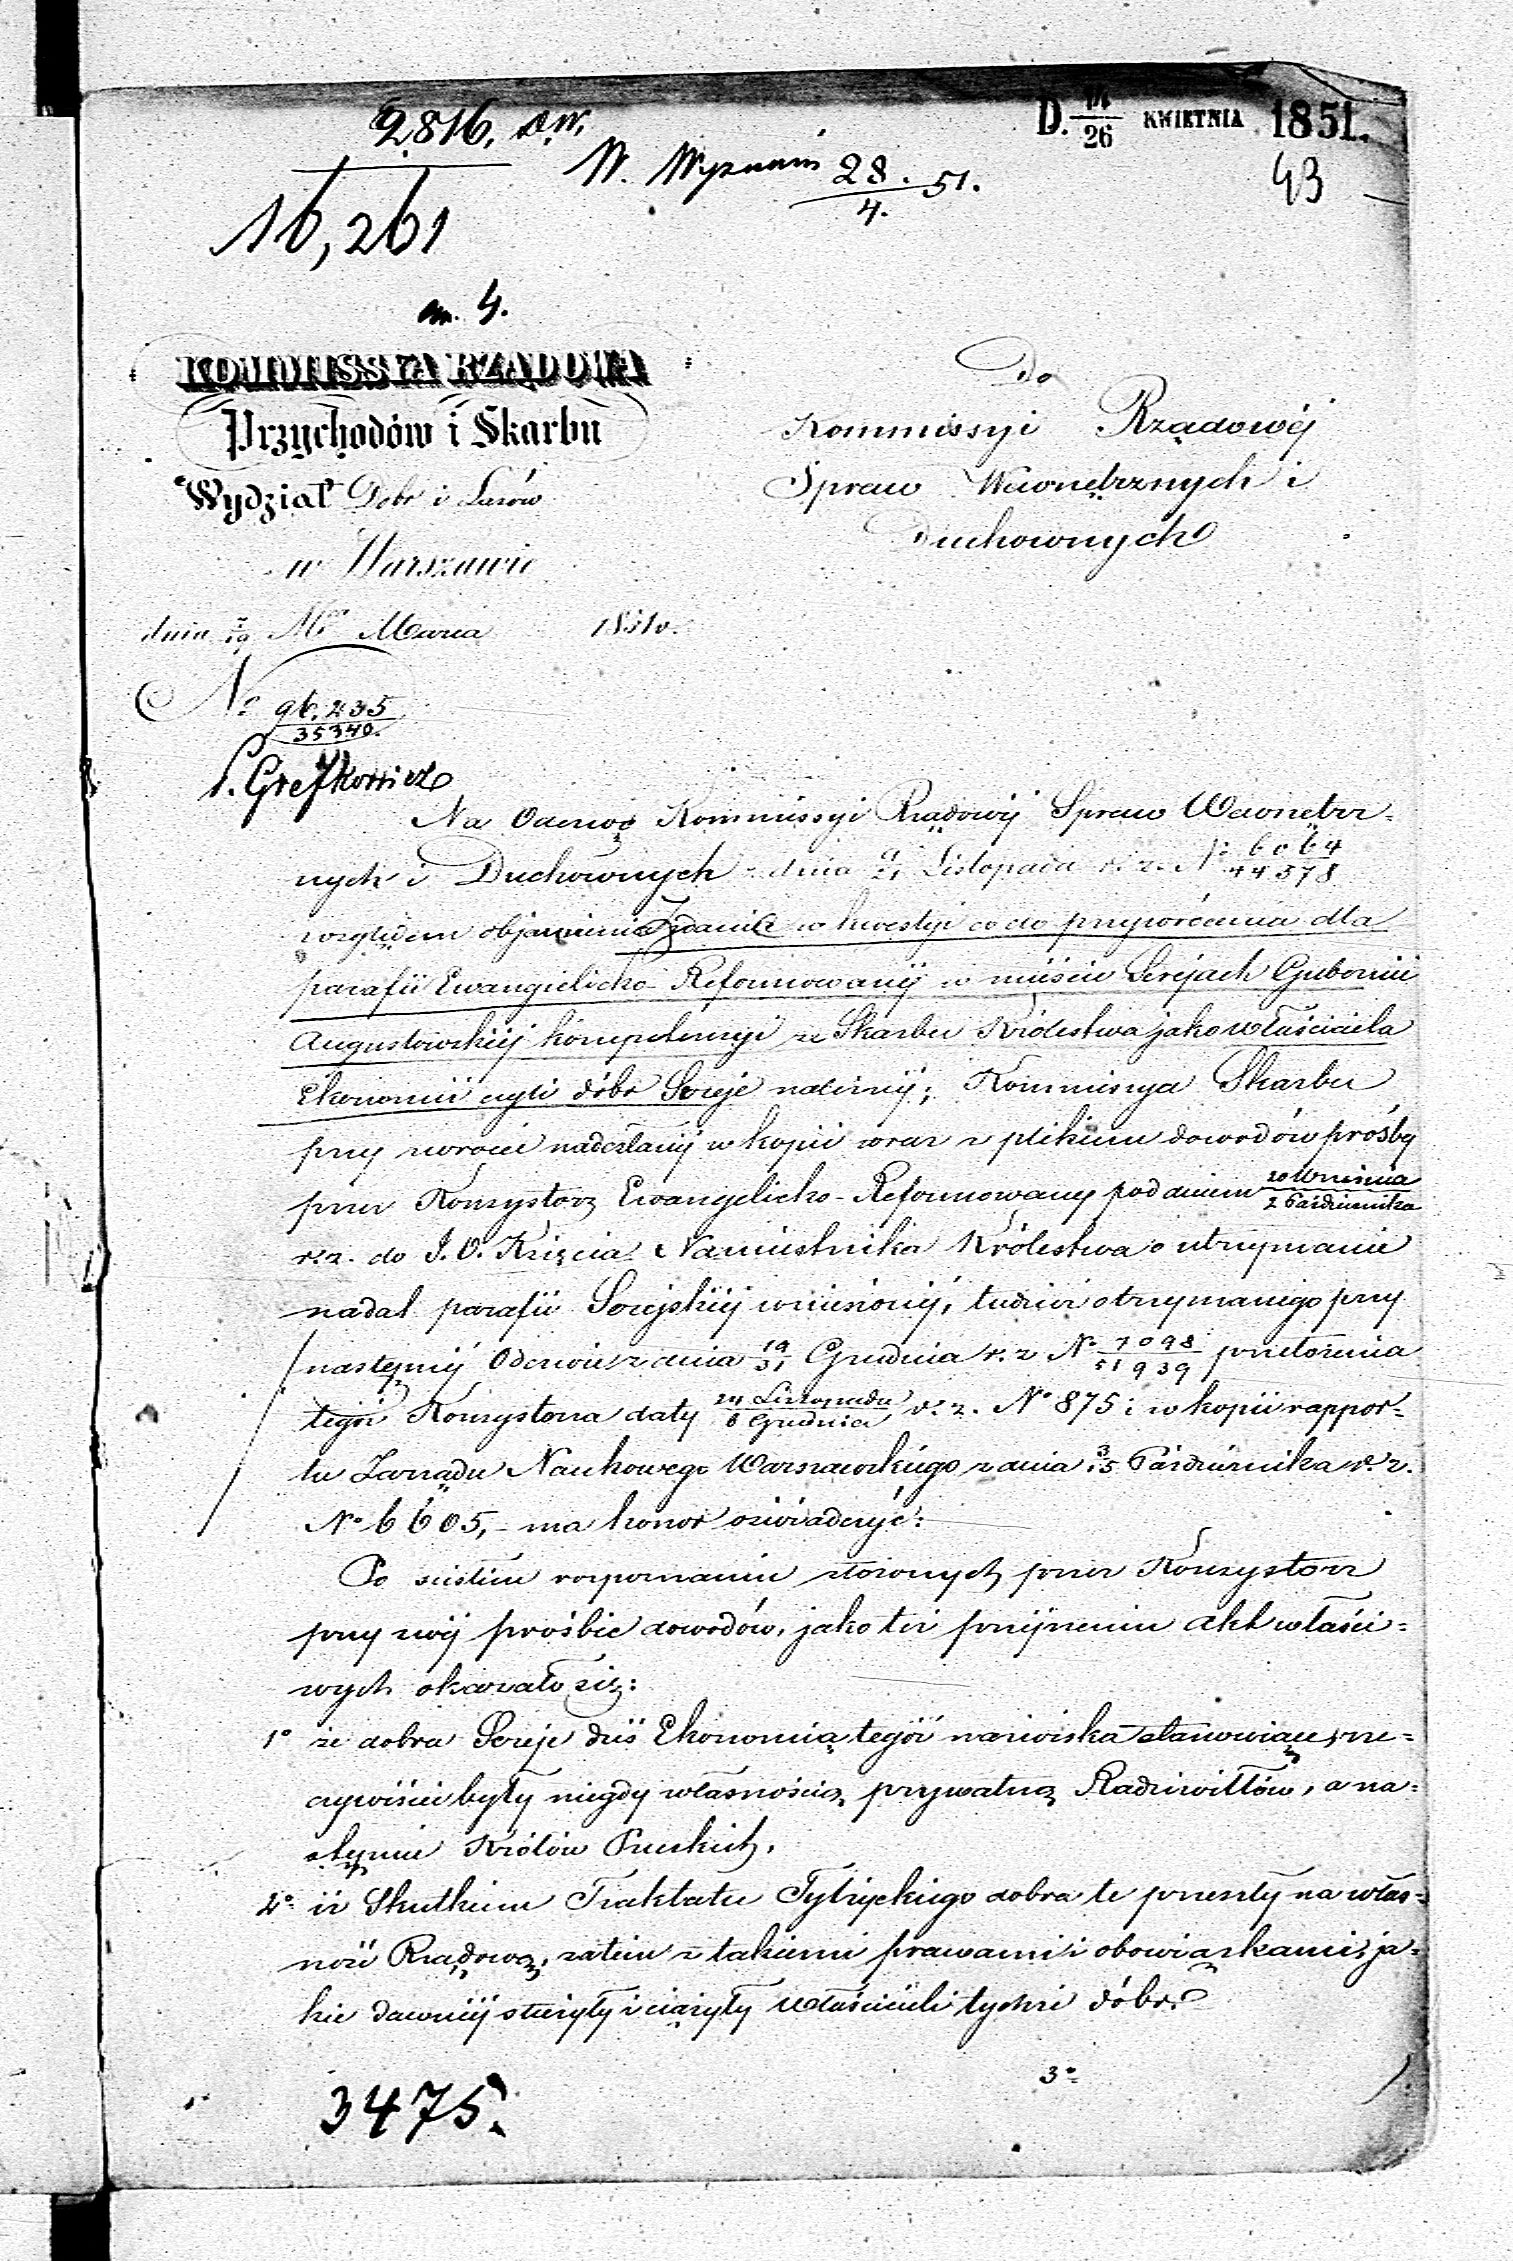 2816. D.W.
D. 14/26 KWIETNIA 1851.
W. Wyznań 28./4. 51.
43
16,261
an. 4.
KOMMISSYA RZĄDOWA
Przychodów i Skarbu
Wydział Dobr i Lasów
w Warszawie
dnia 7/19 Mca Marca 1851 r.
No 96,235/35340.
Do
Kommissyi Rządowéj
Spraw Wewnętrznych i
Duchownych
Na Odezwę Kommissyi Rządowéj Spraw Wewnętrz=
nych i Duchownych z dnia 9/21 Listopada r. z. No 6064/44578
względem objawienia zdania w kwestyi co do przywrócenia dla
parafii Ewangielicko-Reformowanéj w mieście Serejach Gubernii
Augustowskiéj kompetencyi ze Skarbu Królestwa jako właściciela
Ekonomii czyli dóbr Sereje należnéj; Kommissya Skarbu
przy zwrocie nadesłanéj w kopii wraz z plikiem dowodów prośby
przez Konsystorz Ewangelicko-Reformowany pod dniem 20 Września/2 Października
r. z. do J. O. Księcia Namiestnika Królestwa o utrzymanie
nadal parafii Serejskiéj wniesionéj, tudzież otrzymanego przy
następnéj Odezwie z dnia 19/31 Grudnia r. z. No 7098/51939 przełożenia
tegoż Konsystorza daty 24 Listopada/6 Grudnia r. z. No 875 i w kopii rappor=
tu Zarządu Naukowego Warszawskiego z dnia 3/15 Października r. z.
No 6605, - ma honor oświadczyć:
Po ścisłem rozpoznaniu złożonych przez Konsystorz
przy swéj prośbie dowodów, jako też przejrzeniu akt właści=
wych okazało się:
1o że dobra Sereje dziś Ekonomią tegoż nazwiska stanowiące, rze=
czywiście były niegdy własnością prywatną Radziwiłłów, a na=
stępnie Królów Pruskich.
2o iż Skutkiem Traktatu Tylżyckiego dobra te przeszły na włas=
ność Rządową, zatem z takiemi prawami i obowiązkami, ja=
kie dawniéj służyły i ciążyły właścicieli tychże dóbr.
3o
3475.